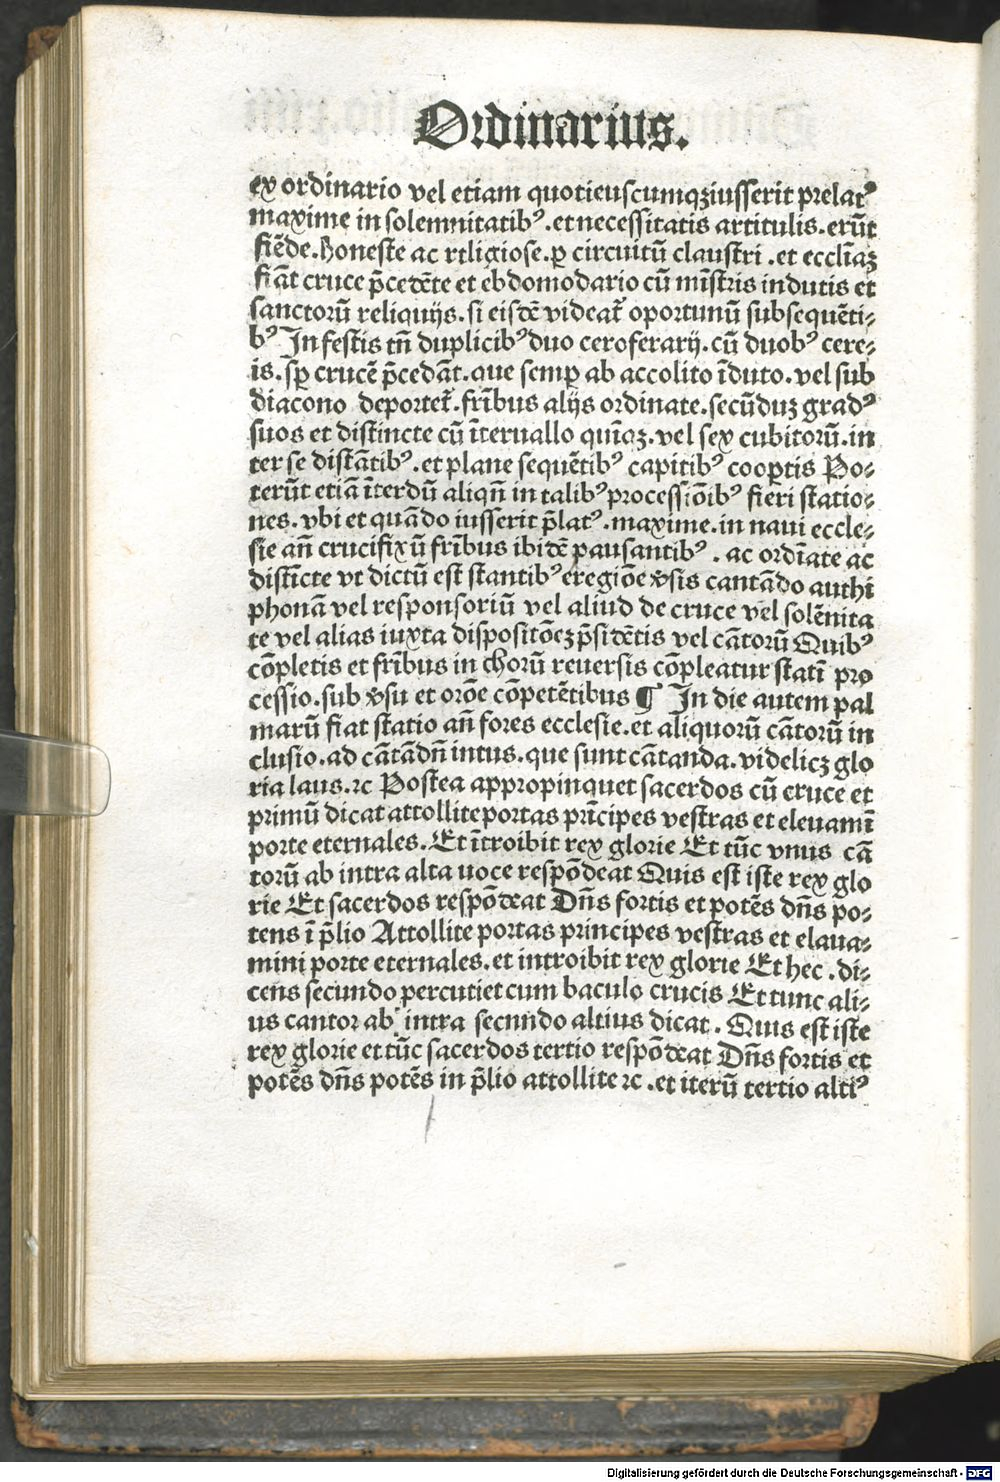 Ordinarius.
ex ordinario vel etiam quotieuscumqꝫiusserit prelatꝰ
maxime in solemnitatibꝰ.et necessitatis artitulis.erūt
fiēde.honeste ac rtligiose.ꝑ circuitū claustri.et eccl̄iaꝫ
fiāt cruce p̄cedēte et ebdomodario cū mīstris indutis et
sanctorū reliquijs.si eisdē videat᷑ oportunū subsequēti⸗
bꝰ In festis tn̄ duplicibꝰ duo ceroferarij.cū duobꝰ cere⸗
is.sꝑ crucē p̄cedāt.que semꝑ ab accolito īduto.vel sub
diacono deportet᷑.fr̄ibus alijs ordinate.secūduꝫ gradꝰ
suos et distincte cū īteruallo quīqꝫ.vel sex cubitorū.in
ter se distātibꝰ.et plane sequētibꝰ capitibꝰ cooꝑtis Po⸗
terūt etiā īterdū aliqn̄ in talibꝰ processiōibꝰ fieri statio⸗
nes.vbi et quādo iusserit p̄latꝰ.maxime.in naui eccle⸗
sie an̄ crucifixū fr̄ibus ibidē pausantibꝰ. ac ordīate ac
distīcte vt dictū est stantibꝰ eregiōe ꝟsis cantādo authi
phonā vel responsoriū vel aliud de cruce vel solēnita
te vel alias iuxta dispositōeꝫ p̄sidētis vel cātorū Quibꝰ
cōpletis et fr̄ibus in chorū reuersis cōpleatur statī pro
cessio.sub ꝟsu et orōe cōpetētibus ¶ In die autem pal
marū fiat statio an̄ fores ecclesie.et aliquorū cātorū in
clusio.ad cātādn̄ intus.que sunt cātanda.videlicꝫ glo
ria laus.ꝛc Postea appropinquet sacerdos cū cruce et
primū dicat attollite portas pr̄icipes vestras et eleuamī
porte eternales. Et ītroibit rex glorie Et tūc vnus cā
torū ab intra alta uoce respōdeat Quis est iste rex glo
rie Et sacerdos respōdeat Dn̄s fortis et potēs dn̄s po⸗
tens ī p̄lio Attollite portas principes vestras et elaua⸗
mini porte eternales.et introibit rex glorie Et hec.di⸗
cens secundo percutiet cum baculo crucis Et tunc ali⸗
us cantor ab intra secnndo altius dicat. Quis est iste
rex glorie et tūc sacerdos tertio respōdeat Dn̄s fortis et
potēs dn̄s potēs in p̄lio attollite ꝛc.et iterū tertio altiꝰ
Digitalisierung gefördert durch die Deutsche Forschungsgemeinschaft - DFG